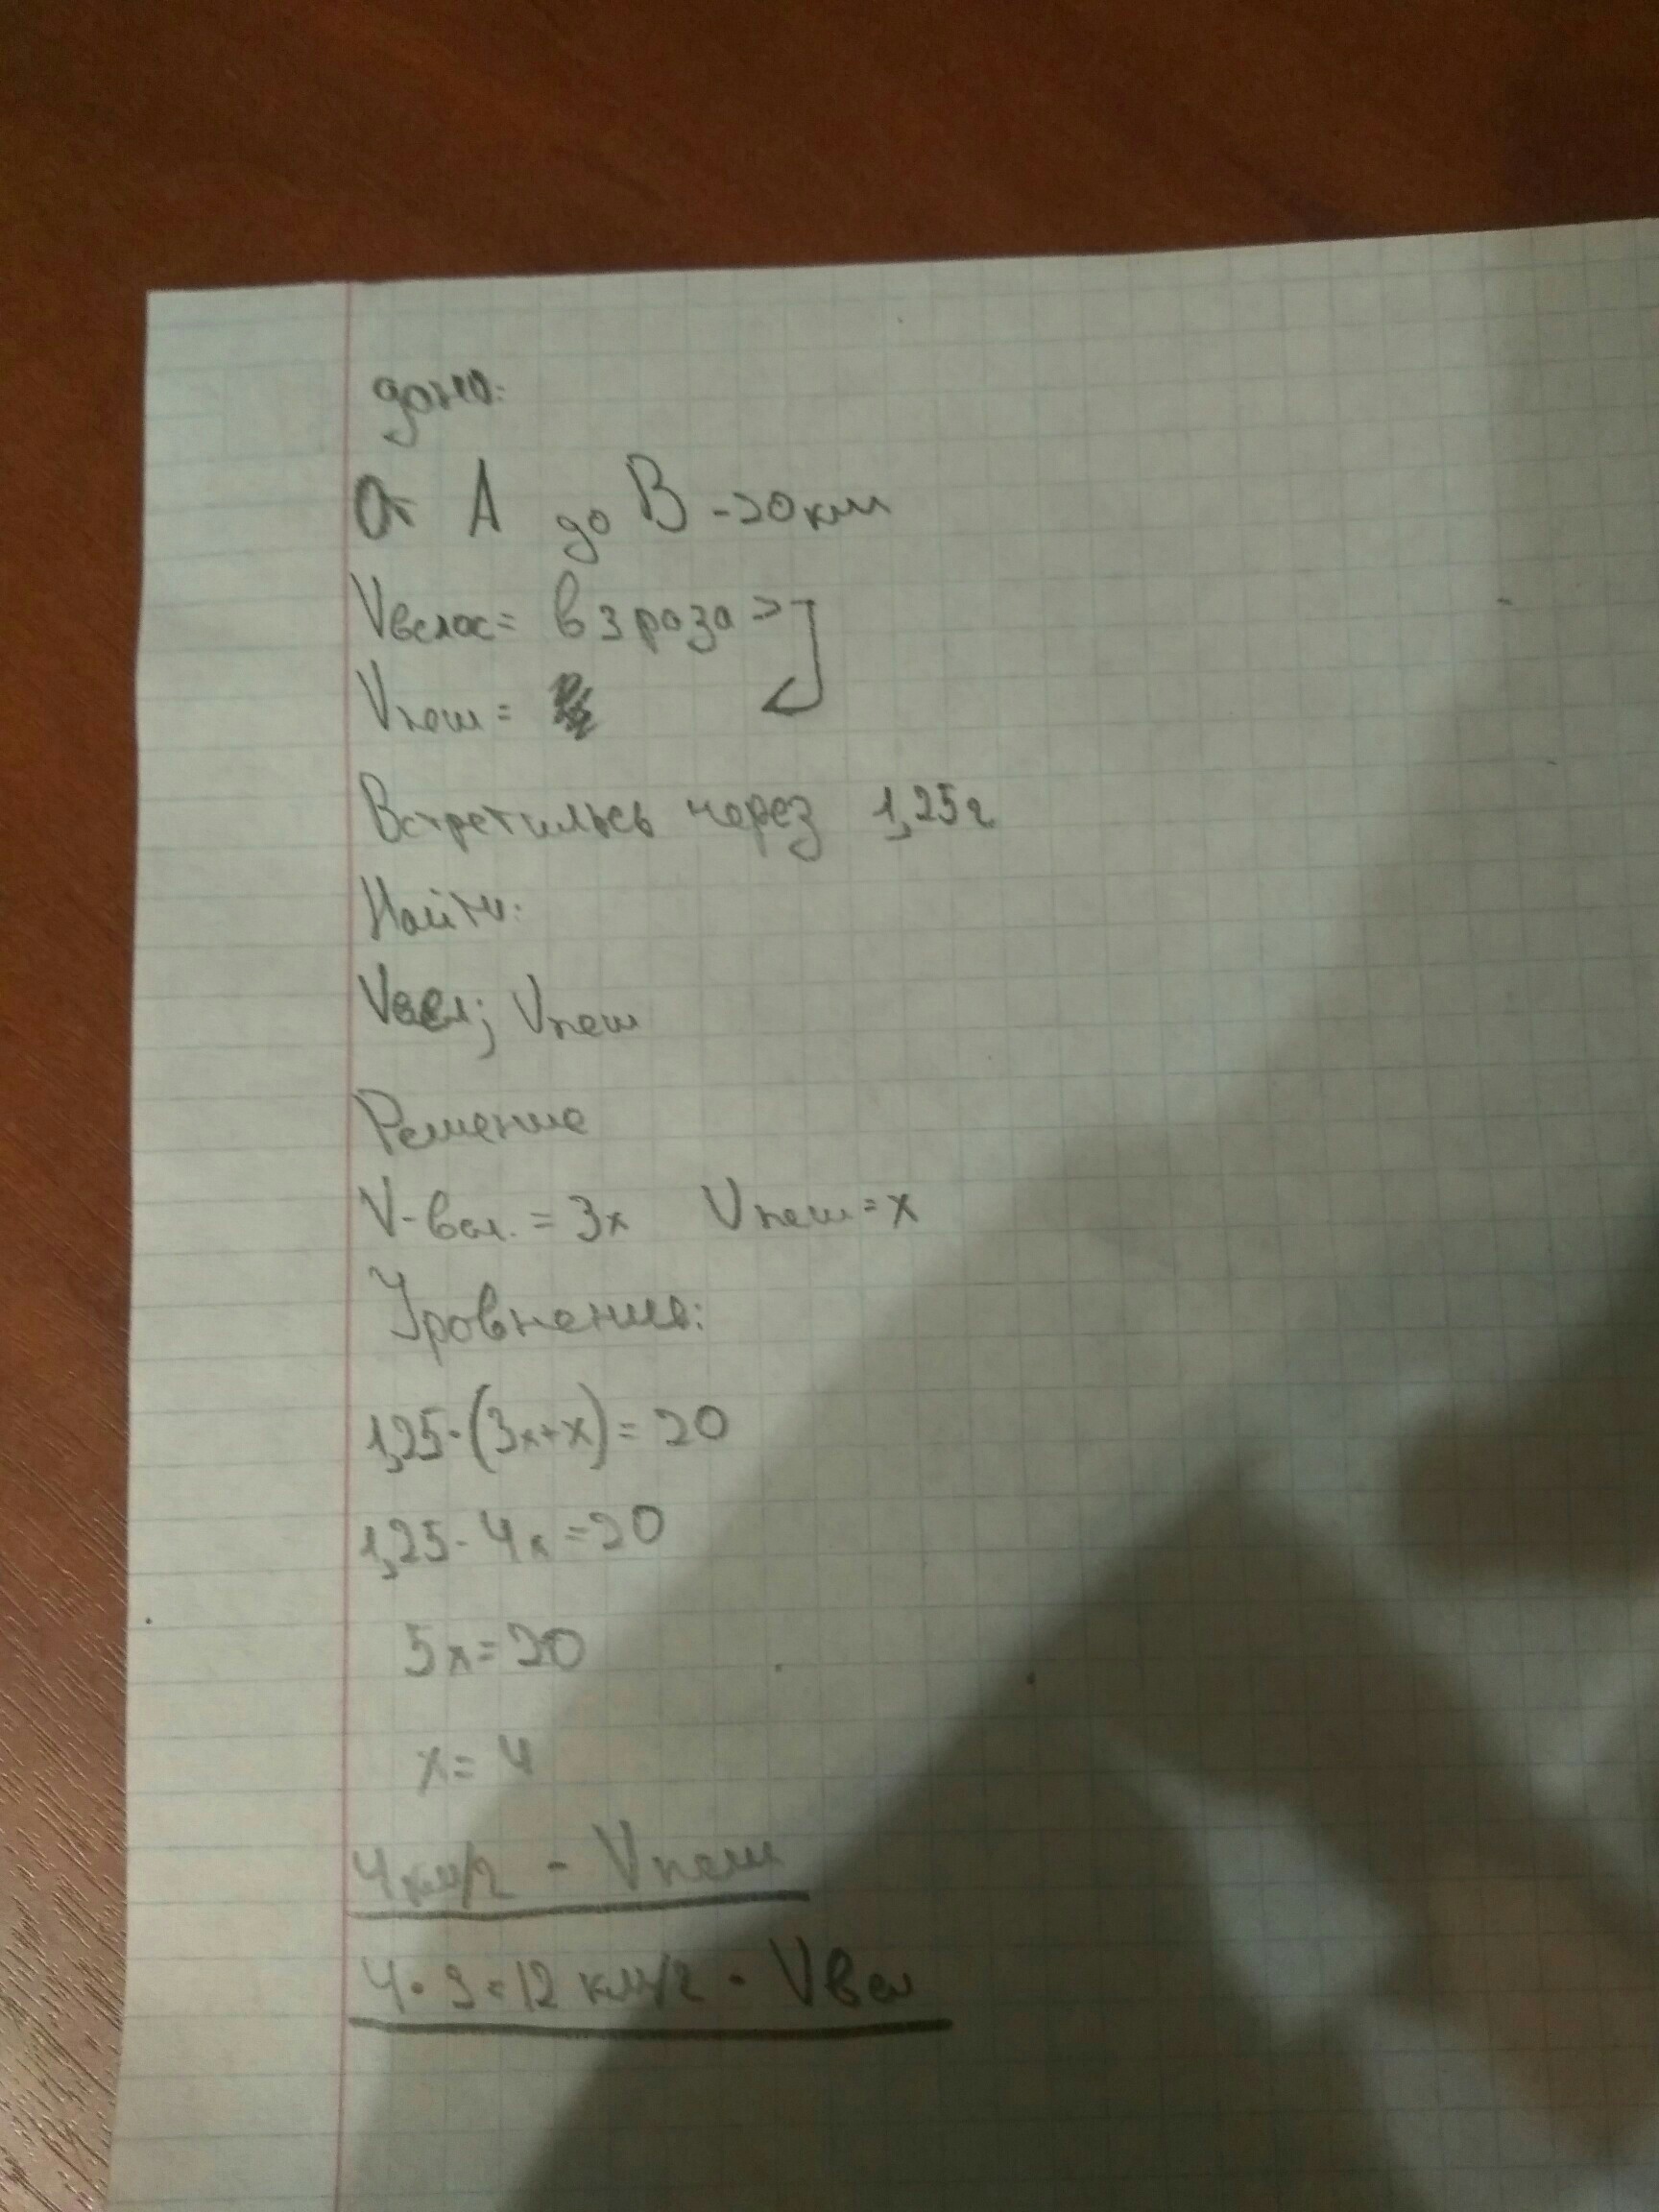 дано:
От А до В - 20 км
Vвелос = в 3 раза >
Vпеш =
Встретились через 1,25 ч
Найти:
Vвел; Vпеш
Решение
V-вел. = 3x Vпеш = x
Уровнение:
1,25·(3x+x)=20
1,25·4x=20
5x=20
x=4
4км/ч - Vпеш
4·3=12 км/ч - Vвел